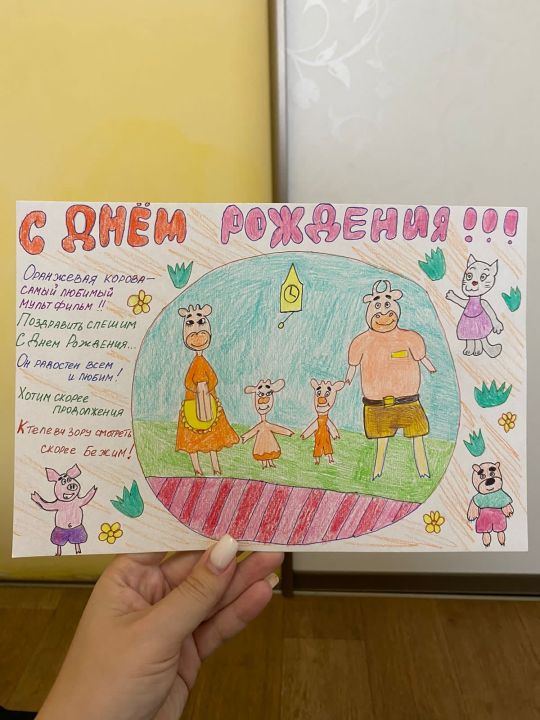 С ДНЁМ РОЖДЕНИЯ!!!
ОРАНЖЕВАЯ КОРОВА –
САМЫЙ ЛЮБИМЫЙ
МУЛЬТФИЛЬМ!!
ПОЗДРАВИТЬ СПЕШИМ
С ДНЕМ РОЖДЕНИЯ...
ОН РАДОСТЕН ВСЕМ
И ЛЮБИМ!
ХОТИМ СКОРЕЕ
ПРОДОЛЖЕНИЯ
К ТЕЛЕВИЗОРУ СМОТРЕТЬ
СКОРЕЕ БЕЖИМ!